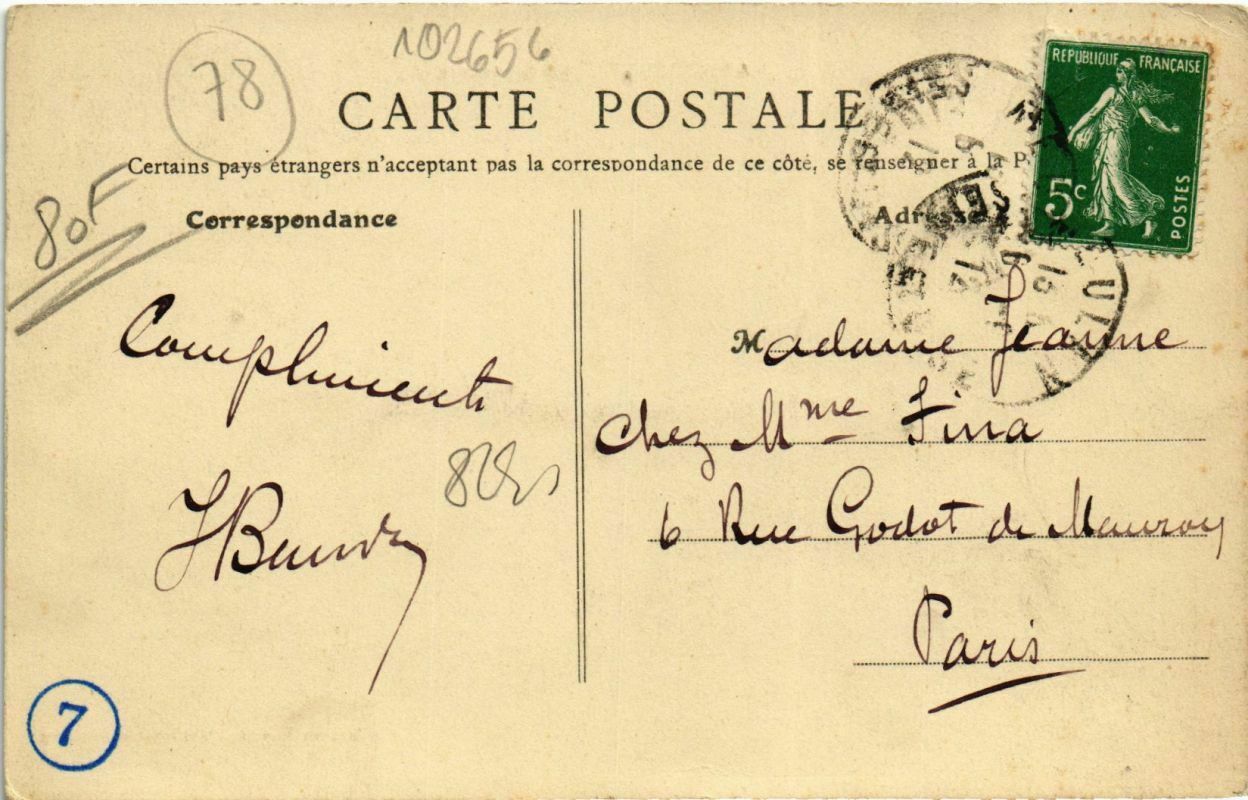 78
102656
CARTE POSTALE
Certains pays étrangers n'acceptant pas la correspondance de ce côté, se renseigner à la P
80F
Correspondance
Adresse
REPUBLIQUE FRANÇAISE
5c
POSTES
Compliments
Madame Jeanne
chez Mme Fina
6 Rue Godot de Mauroy
Paris
7